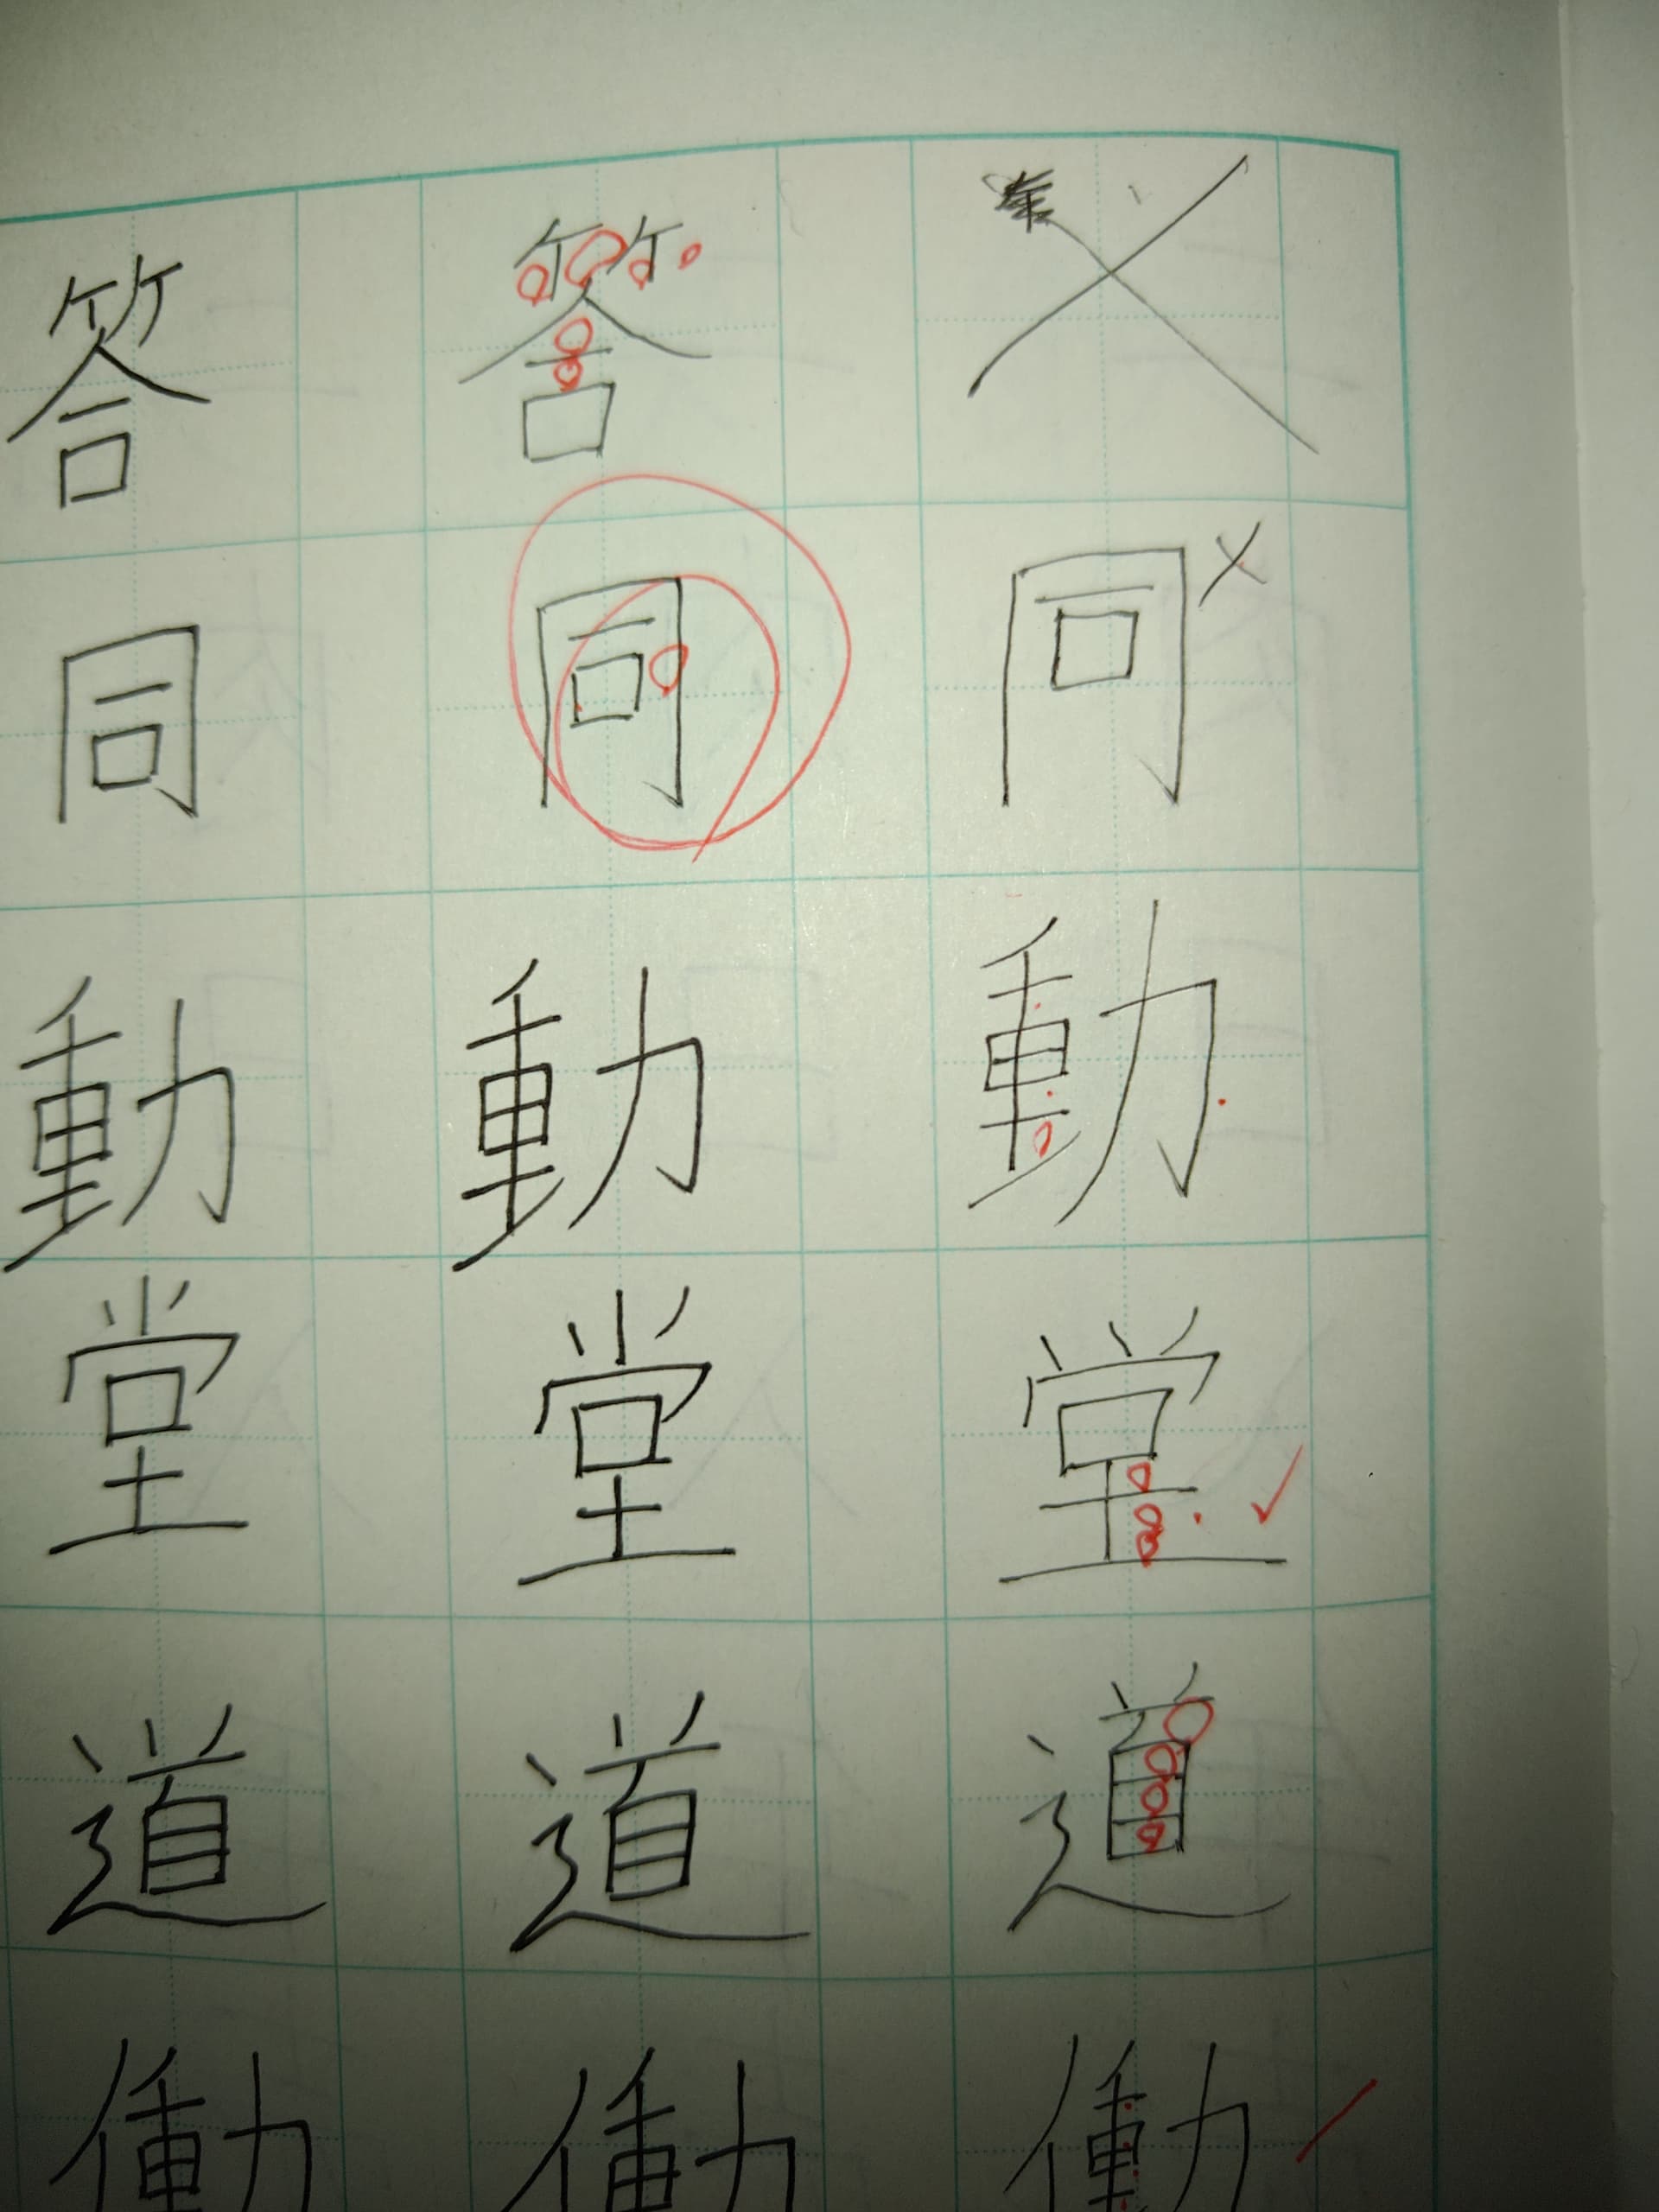 同動堂道働
答同動堂道働
答同動堂道働